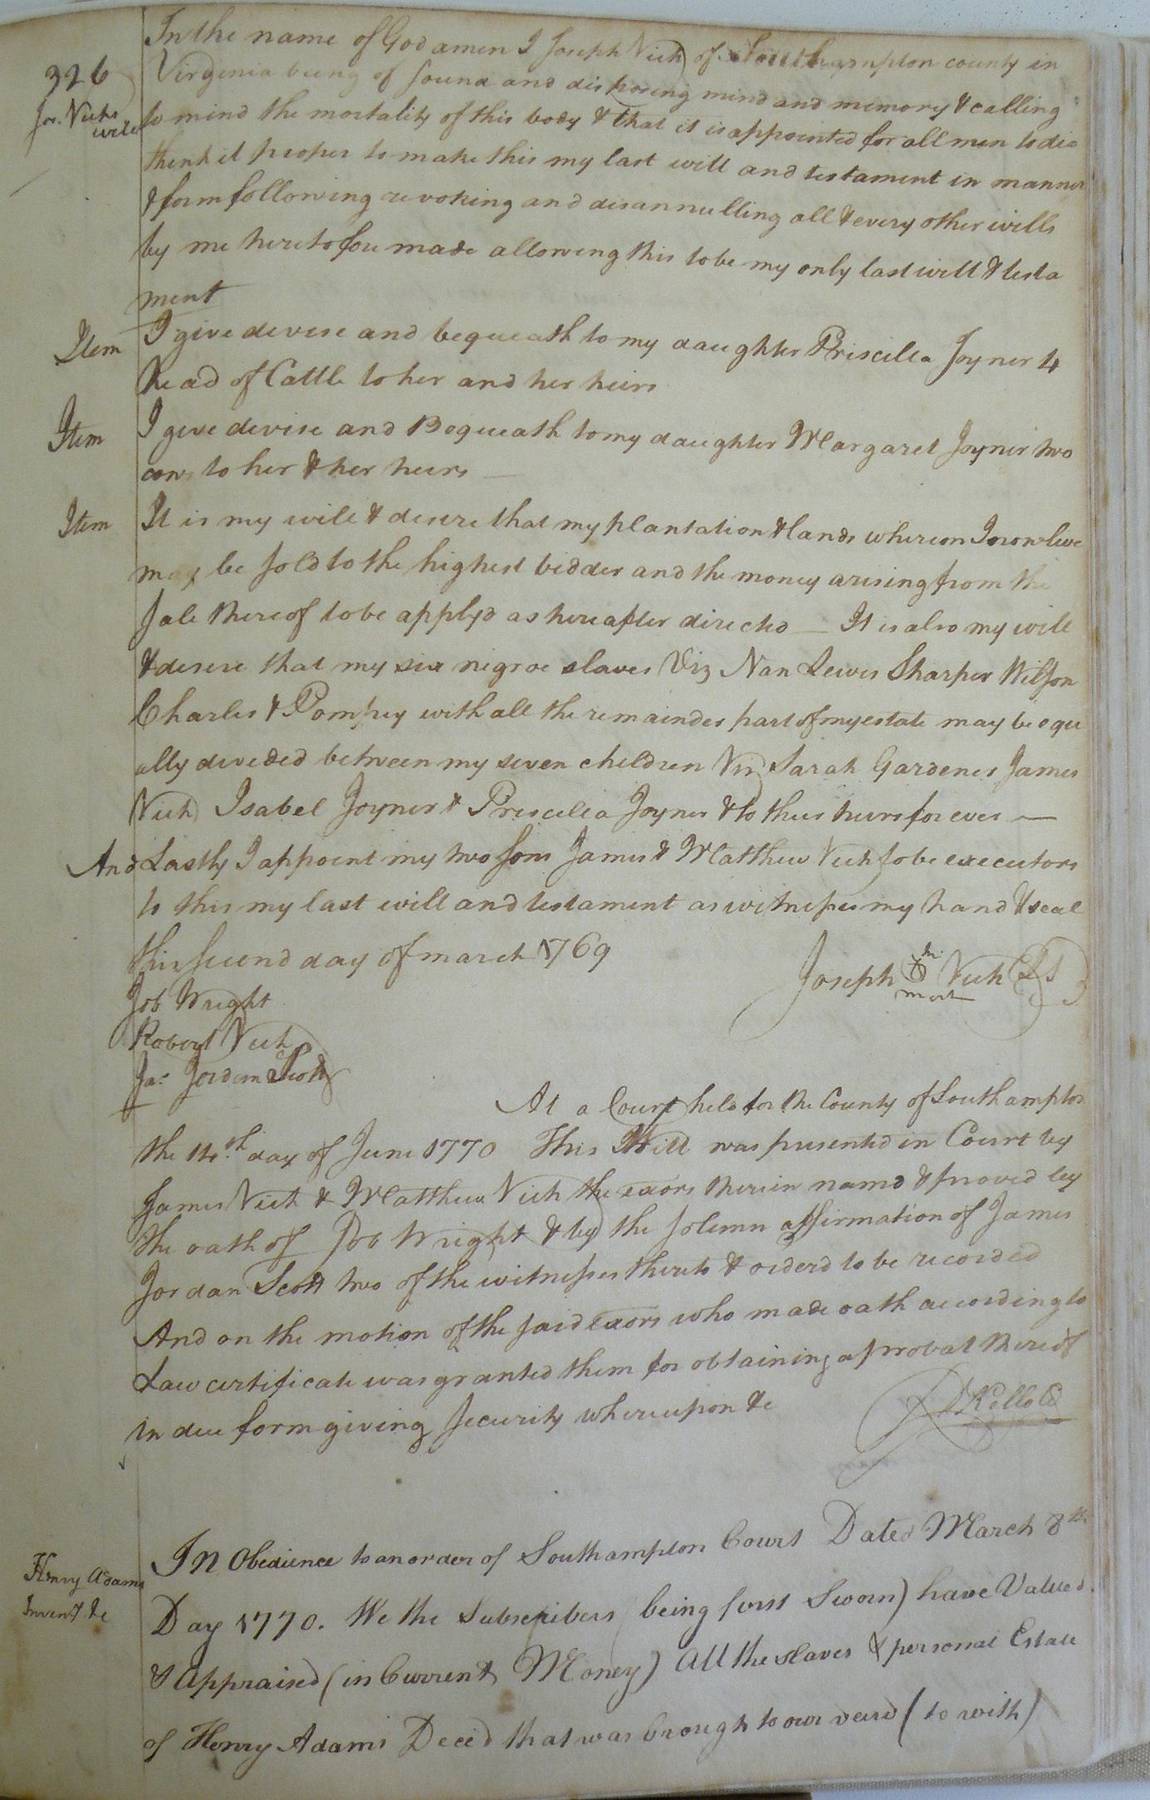 326
Jos. Vicks
will
In the name of God amen I Joseph Vick of Southampton county in
Virginia being of sound and disposing mind and memory & calling
to mind the mortality of this body & that it is appointed for all men to die
think it proper to make this my last will and testament in manner
& form following revoking and disannulling all & every other wills
by me heretofore made allowing this to be my only last will & testa
ment
Item I give devise and bequeath to my daughter Priscilla Joyner 4
head of Cattle to her and her heirs
Item I give devise and Bequeath to my daughter Margaret Joyner two
cows to her & her heirs
Item It is my will & desire that my plantation & lands whereon I now live
may be sold to the highest bidder and the money arising from the
sale thereof to be applyd as hereafter directed — It is also my will
& desire that my six negroe slaves Viz Nan Lewis Sharper Wilson
Charles & Pompey with all the remainder part of my estate may be equ
ally devided between my seven children Viz Sarah Gardener James
Vick Isabel Joyner & Priscilla Joyner & to their heirs for ever —
And Lastly I appoint my two sons James & Matthew Vick to be executors
to this my last will and testament as witness my hand & seal
this second day of march 1769
Joseph his mark Vick LS
Job Wright
Robert Vick
Jas. Jordan Scott
At a Court held for the County of Southampton
the 14th day of June 1770 This Will was presented in Court by
James Vick & Matthew Vick the exors therein named & proved by
the oath of Job Wright & by the solemn affirmation of James
Jordan Scott two of the witnesses thereto & orderd to be recorded
And on the motion of the said exors who made oath according to
Law certificate was granted them for obtaining a probat thereof
in due form giving Security whereupon &c
Kello
Henry Adams
Invent &c
In Obedience to an order of Southampton Court Dated March 8th
Day 1770. We the Subscribers (being first Sworn) have Valued
& Appraised (in Current Money) All the slaves & personal Estate
of Henry Adams Deced that was brough to our veiw (to with)